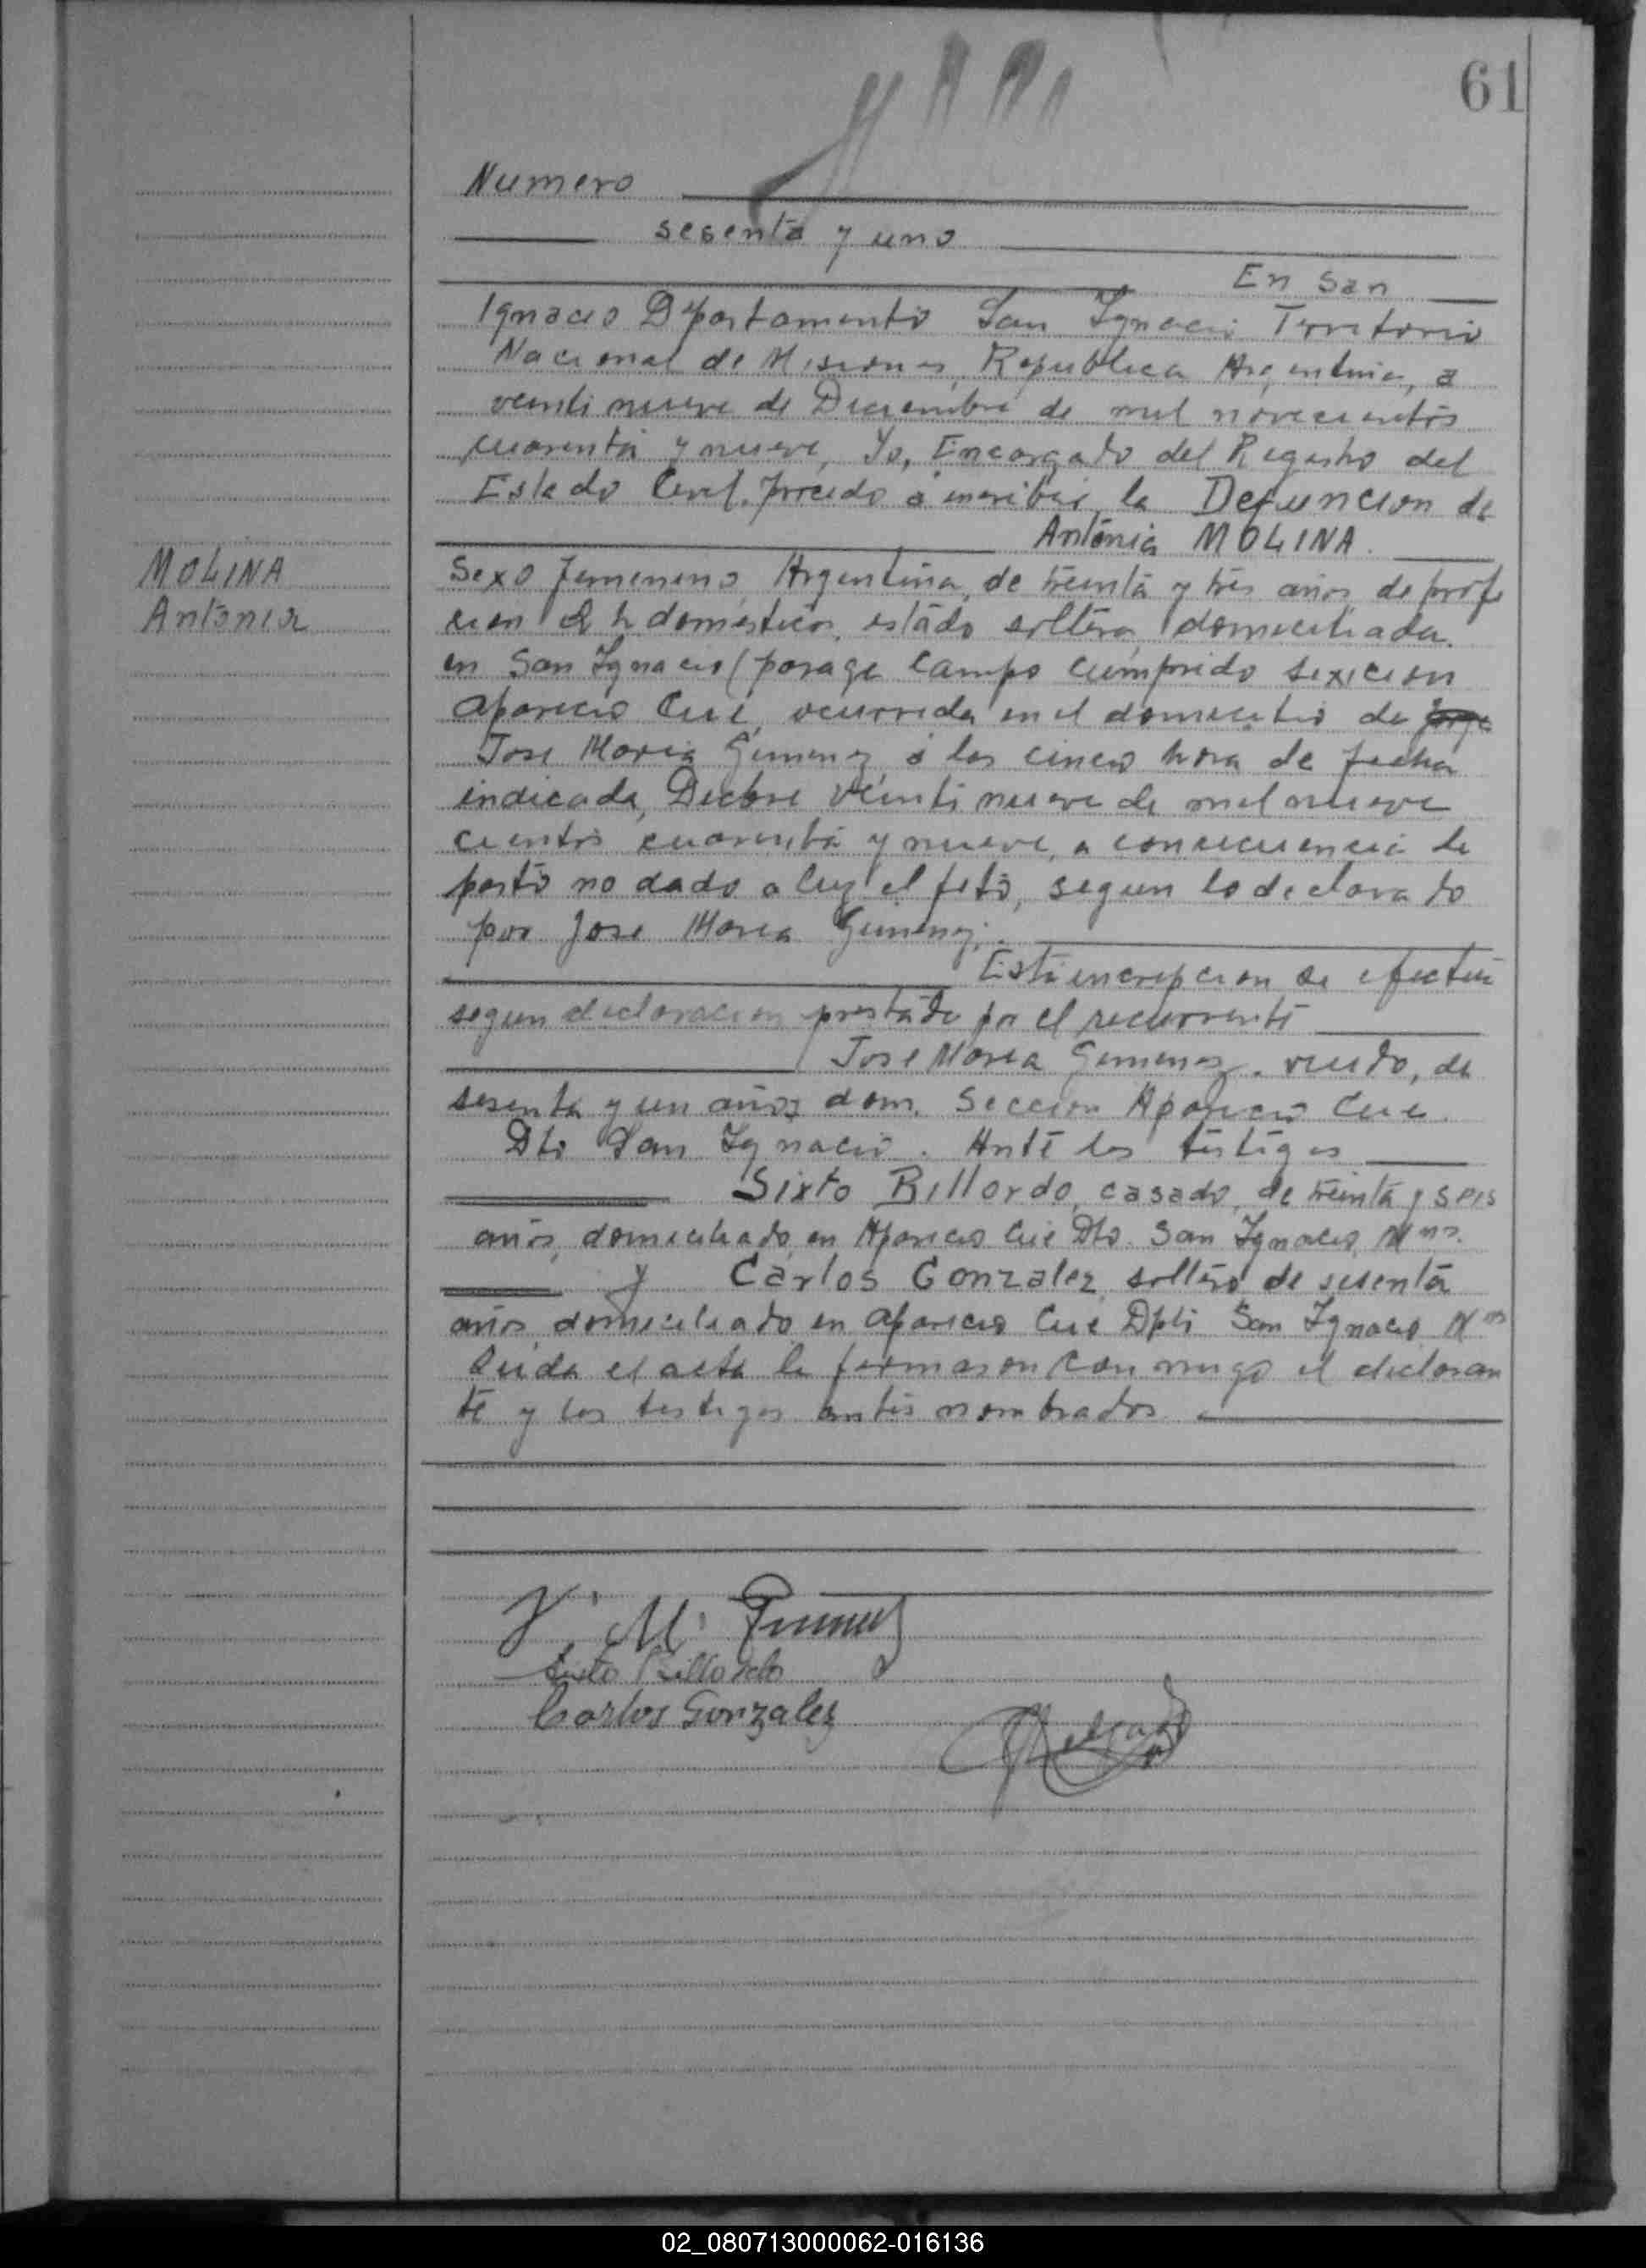 61
Numero
sesenta y uno
En San
Ignacio Dpartamento San Ignacio Territorio
Nacional de Misiones, Republica Argentina, a
veinti nueve de Diciembre de mil novecientos
cuarenta y nueve, Yo, Encargado del Registro del
Estado Civil, procedo a inscribir la Defuncion de
Antonia MOLINA
MOLINA
Antonia
Sexo femenino, Argentina, de treinta y tres años, de profe
cion domestica, estado soltera, domiciliada
en San Ignacio (parage Campo Cumprido sexicion
Aparicio Cué, ocurrida en el domicilio de
Jose Maria Gimenez, a las cinco hora de fecha
indicada, Dicbre veinti nueve de mil nueve
cientos cuarenta y nueve, a consecuencia de
parto no dado a luz el feto, segun lo declarado
por Jose Maria Gimenez.
Esta incripcion se efectua
segun declaracion prestada por el recurrente
Jose Maria Gimenez, viudo, de
sesenta y un años dom. Seccion Aparicio Cue
Dto San Ignacio. Ante los testigos
Sixto Billordo, casado, de treinta y seis
años, domiciliado en Aparicio Cué Dto. San Ignacio, Mnes.
y Carlos Gonzalez soltero de sesenta
años domiciliado en Aparicio Cué Dpto San Ignacio Mnes
Leida el acta la firmaron con migo el declaran
te y los testigos antes nombrados
J. M. Gimenez
Sixto Billordo
Carlos Gonzalez
02_080713000062-016136